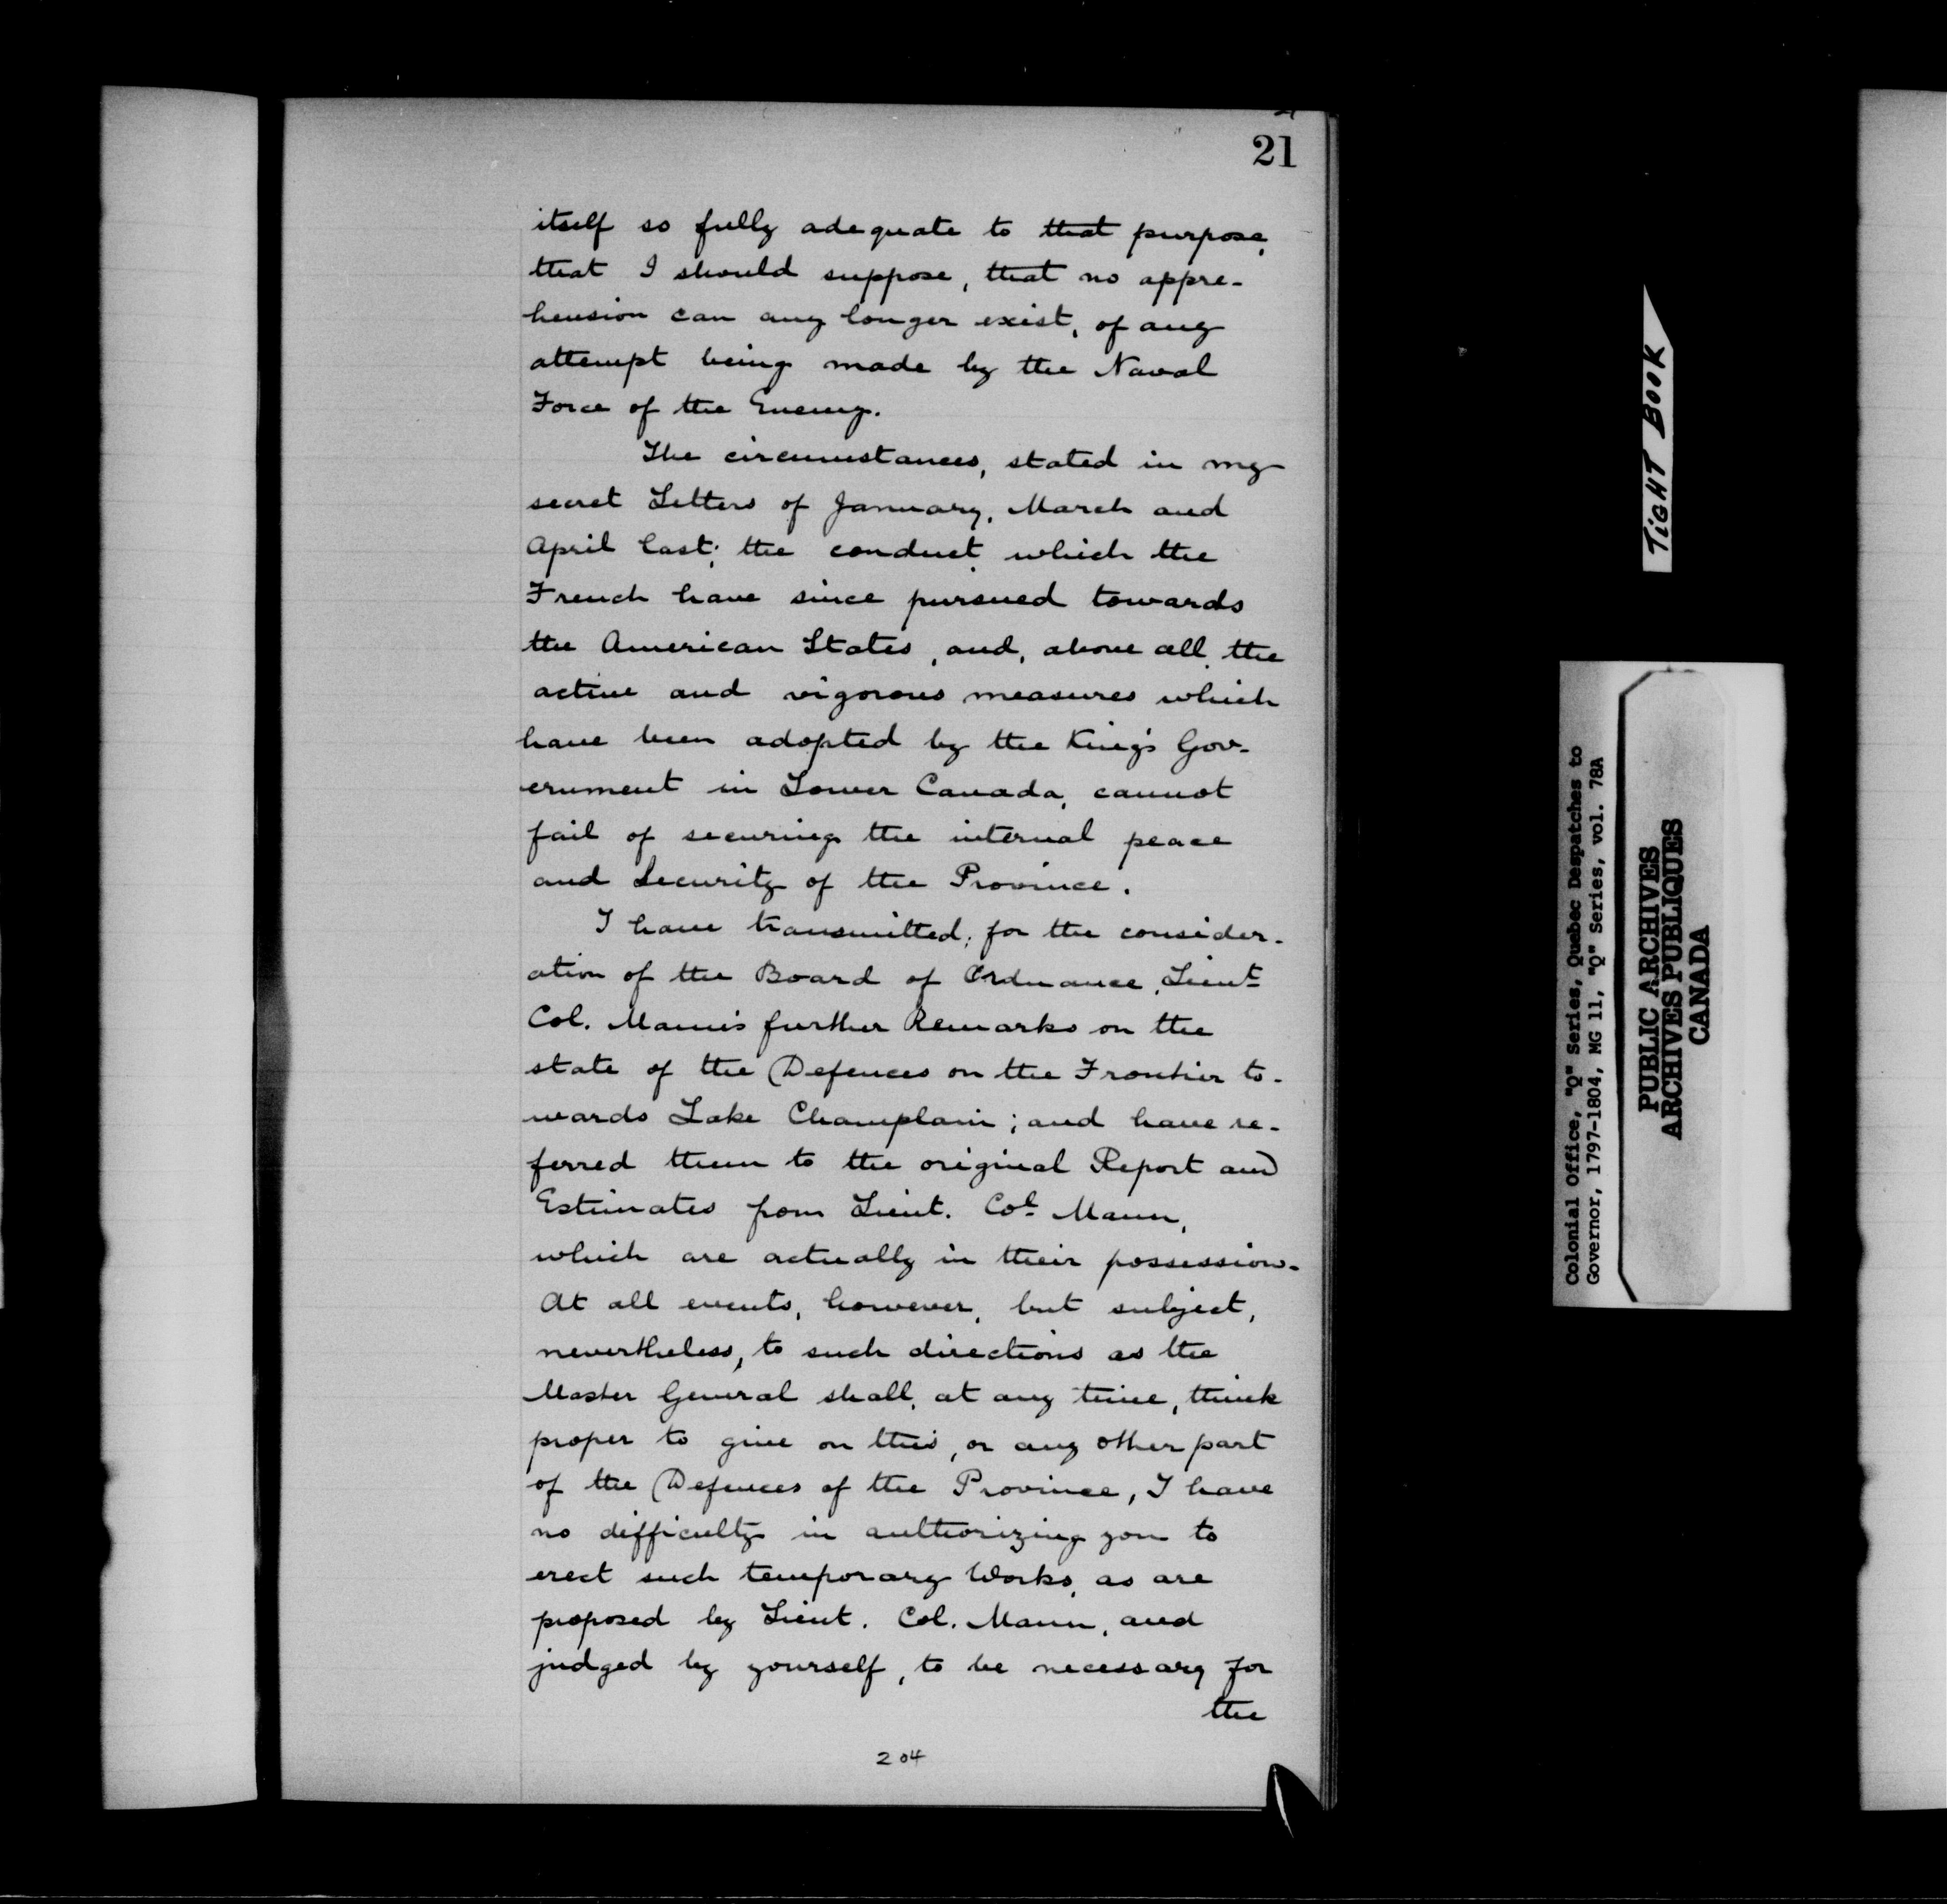 21
itself so fully adequate to that purpose,
that I should suppose, that no appre-
hension can any longer exist, of any
attempt being made by the Naval
Force of the Enemy.
The circumstances, stated in my
secret Letters of January, March and
April last; the conduct which the
French have since pursued towards
the American States, and, above all, the
active and vigorous measures which
have been adopted by the King's Gov-
ernment in Lower Canada, cannot
fail of securing the internal peace
and Security of the Province.
I have transmitted, for the consider-
ation of the Board of Ordnance, Lieut
Col. Mann's further Remarks on the
state of the Defences on the Frontier to-
wards Lake Champlain; and have re-
ferred them to the original Report and
Estimates from Lieut. Col Mann,
which are actually in their possession.
At all events, however, but subject,
nevertheless, to such directions as the
Master General shall, at any time, think
proper to give on this, or any other part
of the Defences of the Province, I have
no difficulty in authorizing you to
erect such temporary Works, as are
proposed by Lieut. Col. Mann, and
judged by yourself, to be necessary for
the
204
TIGHT BOOK
Colonial Office, "Q" Series, Quebec Despatches to
Governor, 1797-1804, MG 11, "Q" Series, vol. 78A
PUBLIC ARCHIVES
ARCHIVES PUBLIQUES
CANADA